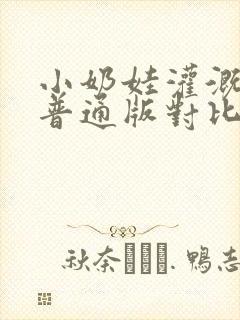 小奶娃灌溉
普通版對比
秋奈 . 鴨志